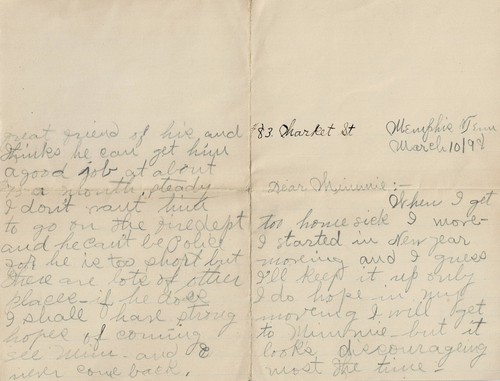 83. Market St
Memphis Tenn
March 10/98
Dear Minnnie:-
When I get
too homesick I move-
I started in New Year
moveing and I guess
I'll keep it up only
I do hope in my
moveing I will get
to Minnnie - but it
looks discourageing
most the time -
great friend of his and
thinks he can get him
a good job at about
a month, steady
I don't want him
to go on the
and he cant be Police
for he is too short but
there are lots of other
places - if he does
I shall have strong
hopes of coming
see Minn - and
never come back.